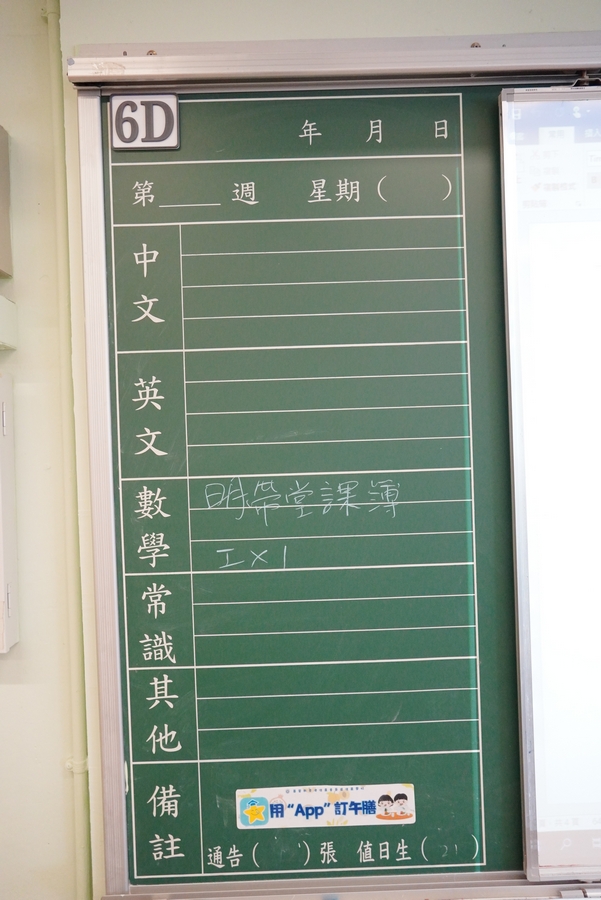 6D
年 月 日
第____週 星期( )
中文
英文
數學
明帶堂課簿
工 x 1
常識
其他
備註
用“App”訂午膳
通告( )張 值日生(21)